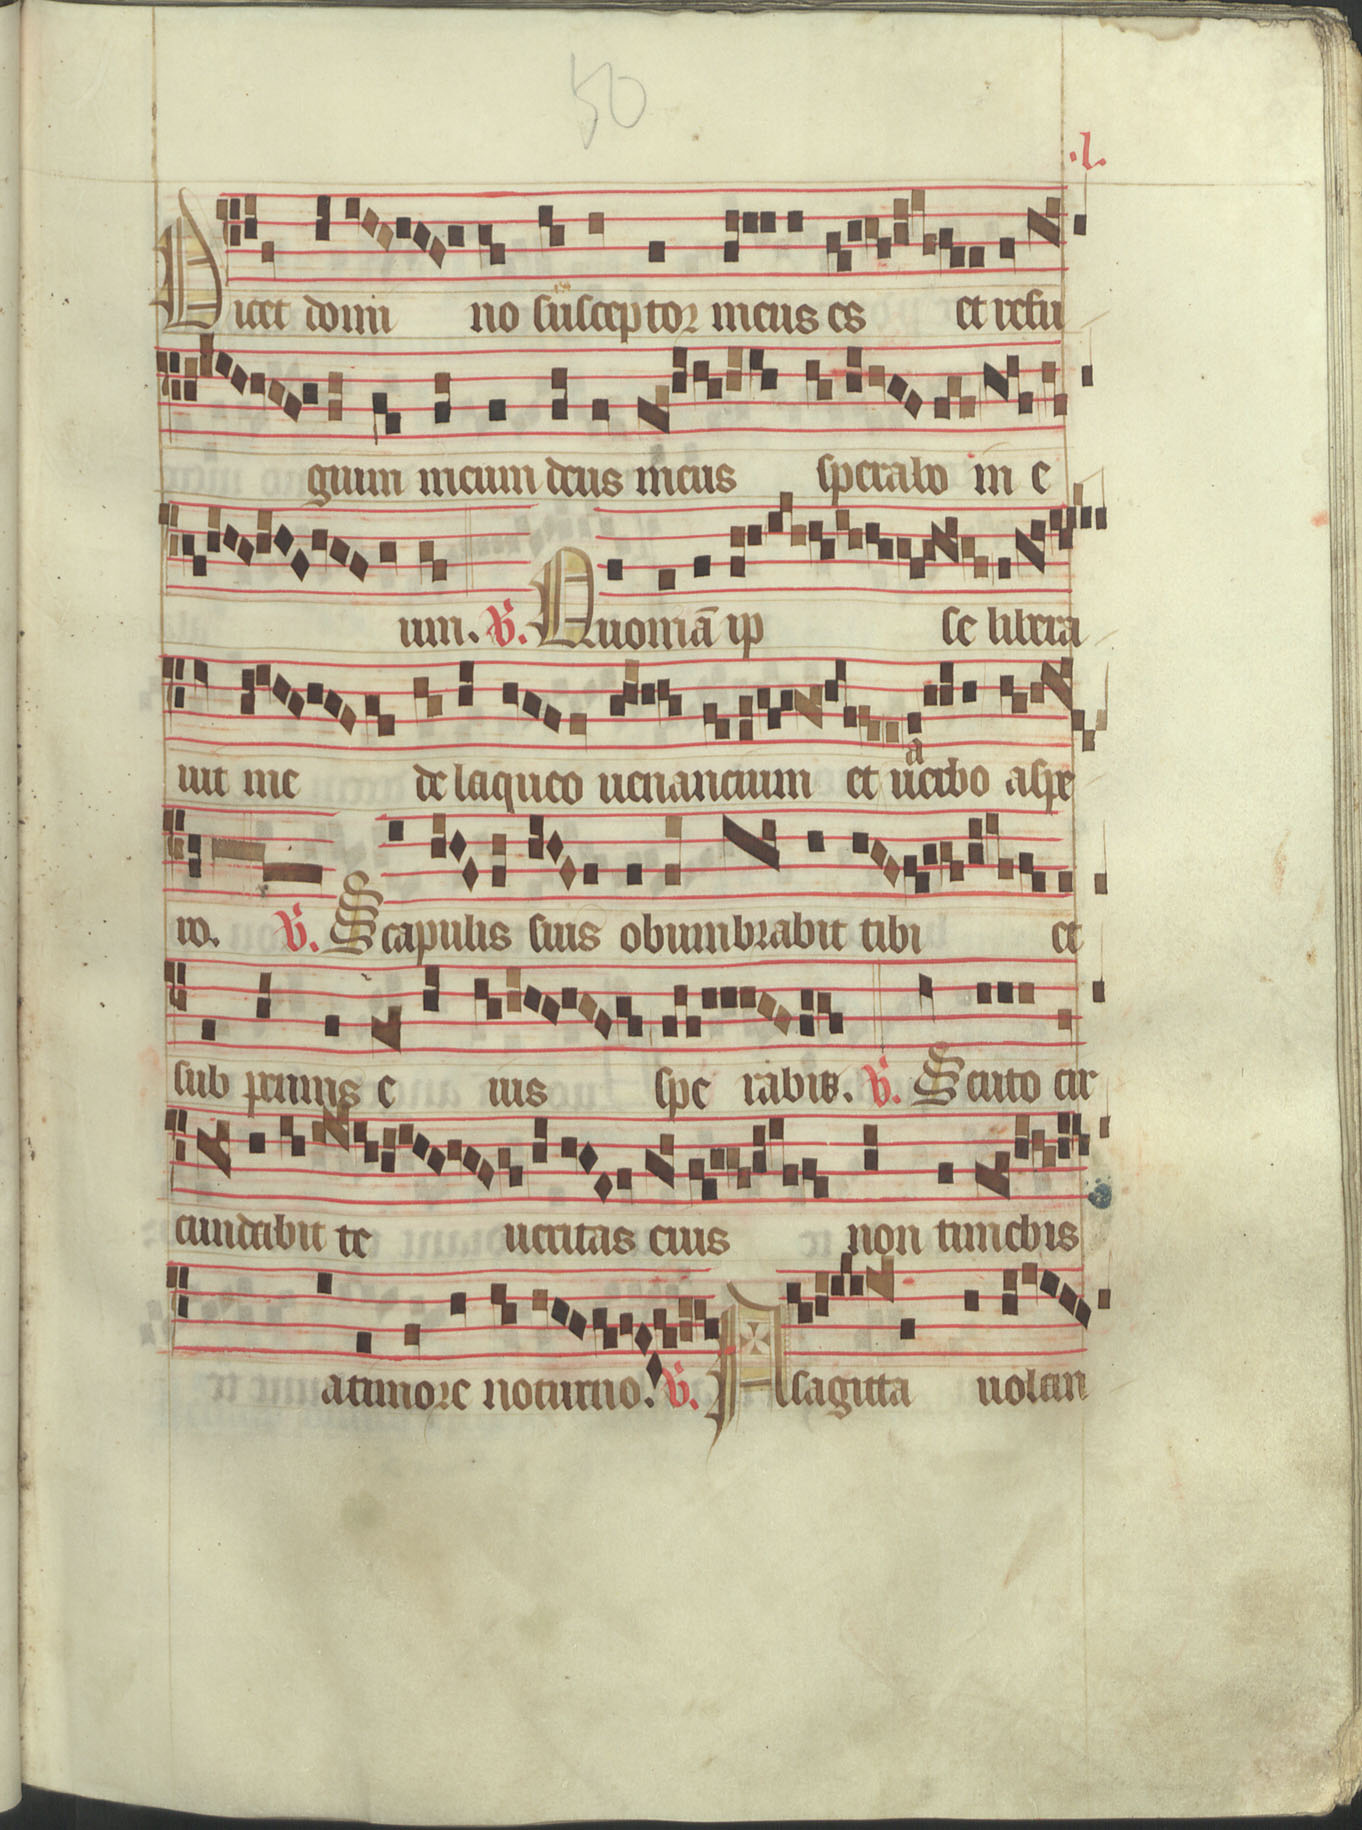 50
.l.
Dicet domi no susceptor meus es et refu
gium meum deus meus sperabo in e
um. V. Quoniā ip se libera
uit me de laqueo uenancium et a uerbo aspe
ro. V. Scapulis suis obumbrabit tibi et
sub pennis e ius spe rabis. V. Scuto cir
cundabit te ueritas eius non timebis
a timore noturno. V. A sagitta uolan